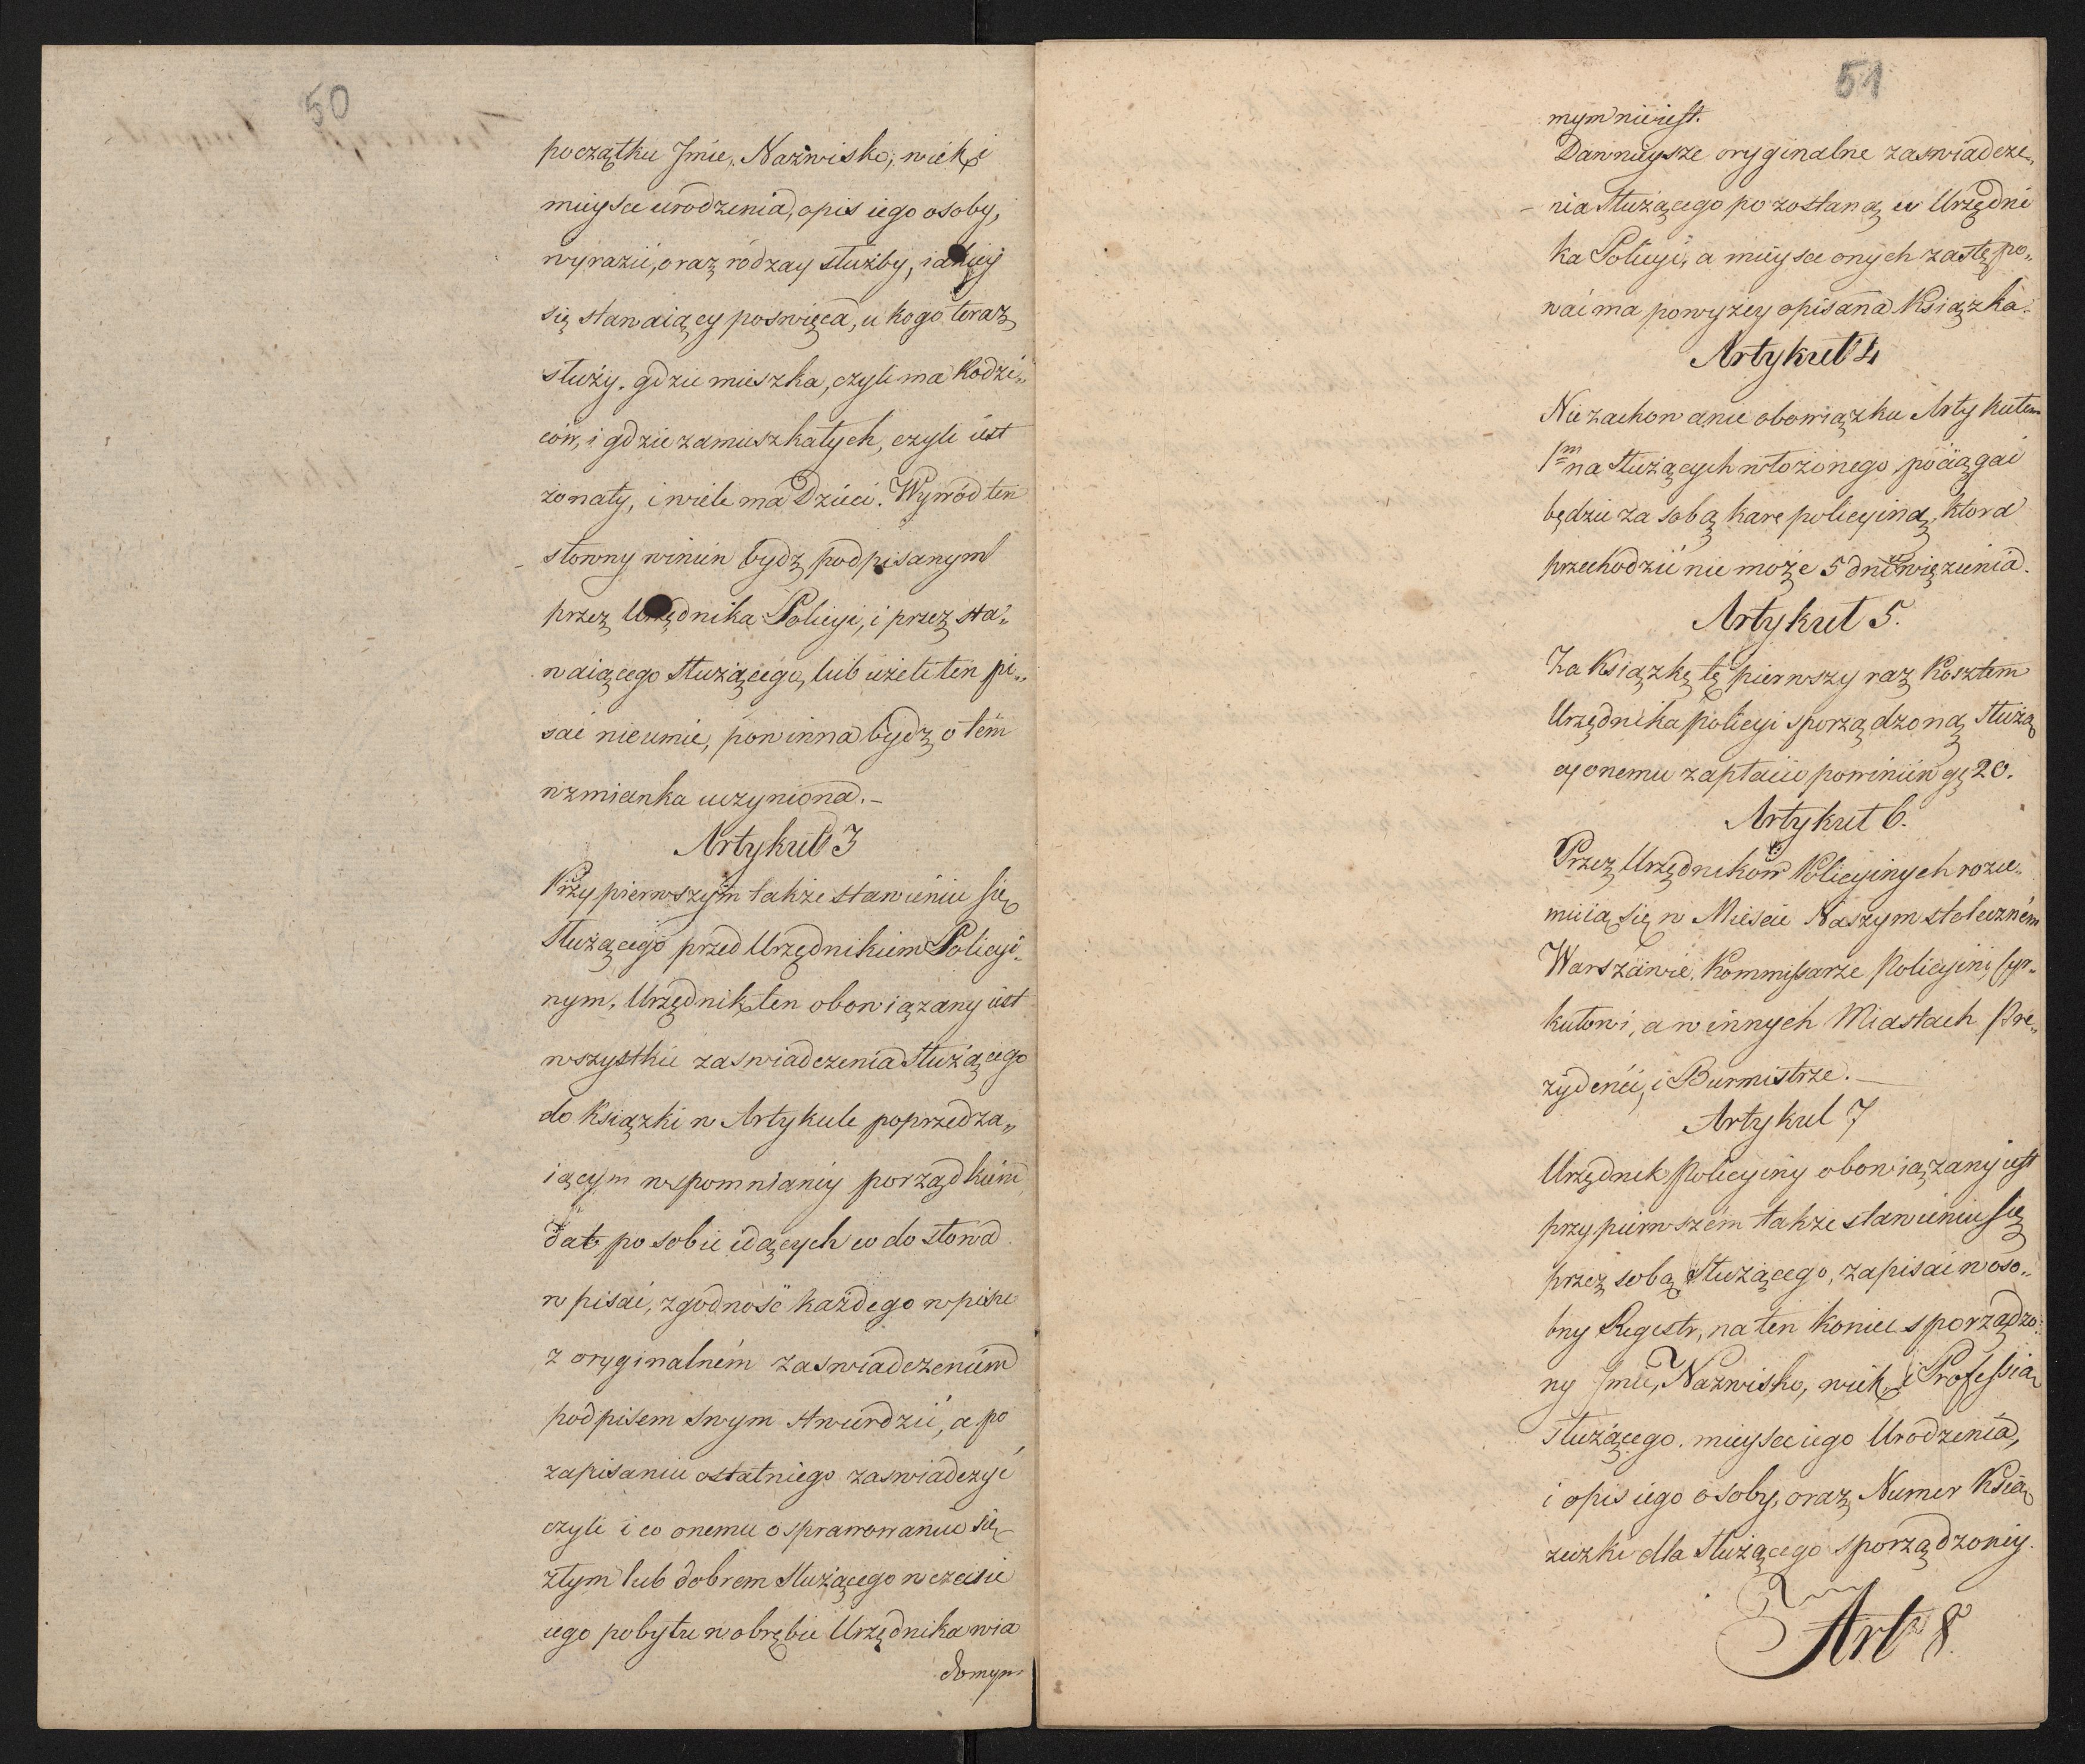 50
początku Jmie, Nazwisko, wiek i
mieysce urodzenia, opis iego osoby,
wyrazić, oraz rodzay służby, iakiey
się stawaiący poswięca, u kogo teraz
służy, gdzie mieszka, czyli ma Rodzi„
ców, i gdzie zamieszkałych, czyli iest
żonaty, i wiele ma Dzieci. Wywód ten
słowny winien bydz podpisanym
przez Urzędnika Policyi, i przez sta„
waiącego służącego, lub ieżeli ten pi„
sać nieumie, powinna bydz o tém
wzmianka uczyniona.–
Artykuł 3
Przy pierwszym także stawieniu się
służącego przed Urzędnikiem Policyi„
nym, Urzędnik ten obowiązany iest
wszystkie zaswiadczenia służącego
do Ksiązki w Artykule poprzedza„
iącym wspomnianey porządkiem
dat po sobie idących co do słowa
wpisać, zgodność każdego wpisu
z oryginalném zaswiadczeniem
podpisem swym stwierdzić, a po
zapisaniu ostatniego zaswiadczyć
czyli i co onemu o sprawowaniu się
złym lub dobrem służącego w czasie
iego pobytu w obrębie Urzędnika wia
domym
51
mym nieiest.
Dawnieysze oryginalne zaswiadcze„
nia służącego pozostaną u Urzędni
ka Policyi, a mieysce onych zastępo„
wać ma powyżey opisana Książka.
Artykuł 4
Niezachowanie obowiązku Artykułem
1m na służących włożonego, pociągać
będzie za sobą karę policyiną, ktora
przechodzić nie może 5 dni więzienia.
Artykuł 5.
Za Książkę tę pierwszy raz Kosztem
Urzędnika policyi sporządzoną służą
cy onemu zapłacić powinien gr 20.
Artykuł 6.
Przez Urzędników Policyinych rozu„
mieią się w Miescie Naszym stołeczném
Warszawie, Kommissarze Policyini Cyr„
kułowi, a w innych Miastach Pre„
zydenci, i Burmistrze.–
Artykuł 7
Urzędnik Policyiny obowiązany iest
przy pierwszém także stawieniu się
przez sobą służącego, zapisać w oso„
bny Regestr, na ten koniec sporządzo„
ny Jmie, Nazwisko, wiek, i Professią
służącego, mieysce iego Urodzenia,
i opis iego osoby, oraz Numer Ksią
żeczki dla służącego sporządzoney.
Art 8.